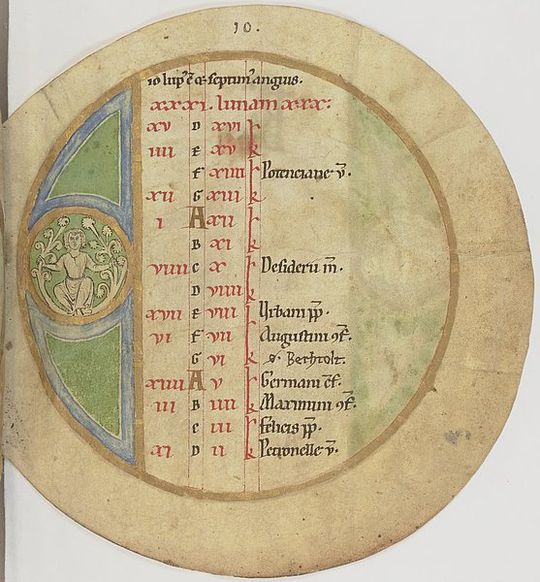 10.
io lup' ē & septim' anguis.
xxxi. lunam xxx:
xv D xvi k
iiii E xv k
F xiiii k Potenciane v̄.
xii G xiii k
i A xii k
B xi k
viiii C x k Desiderii m̄.
D viiii k
xvii E viii k Urbani pp̄.
vi F vii k Augustini ꝯf.
G vi k S. Berhtolt.
xiiii A v k Germani c̄f.
iii B iiii k Maximini ꝯf.
C iii k felicis pp̄.
xi D ii k Petronelle v̄.